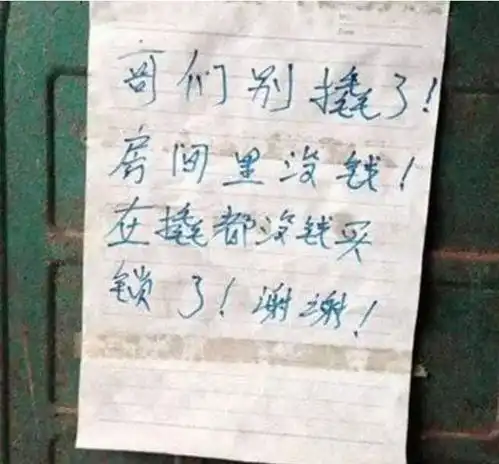 哥们别撬了！
房间里没钱！
在撬都没钱买
锁了！谢谢！